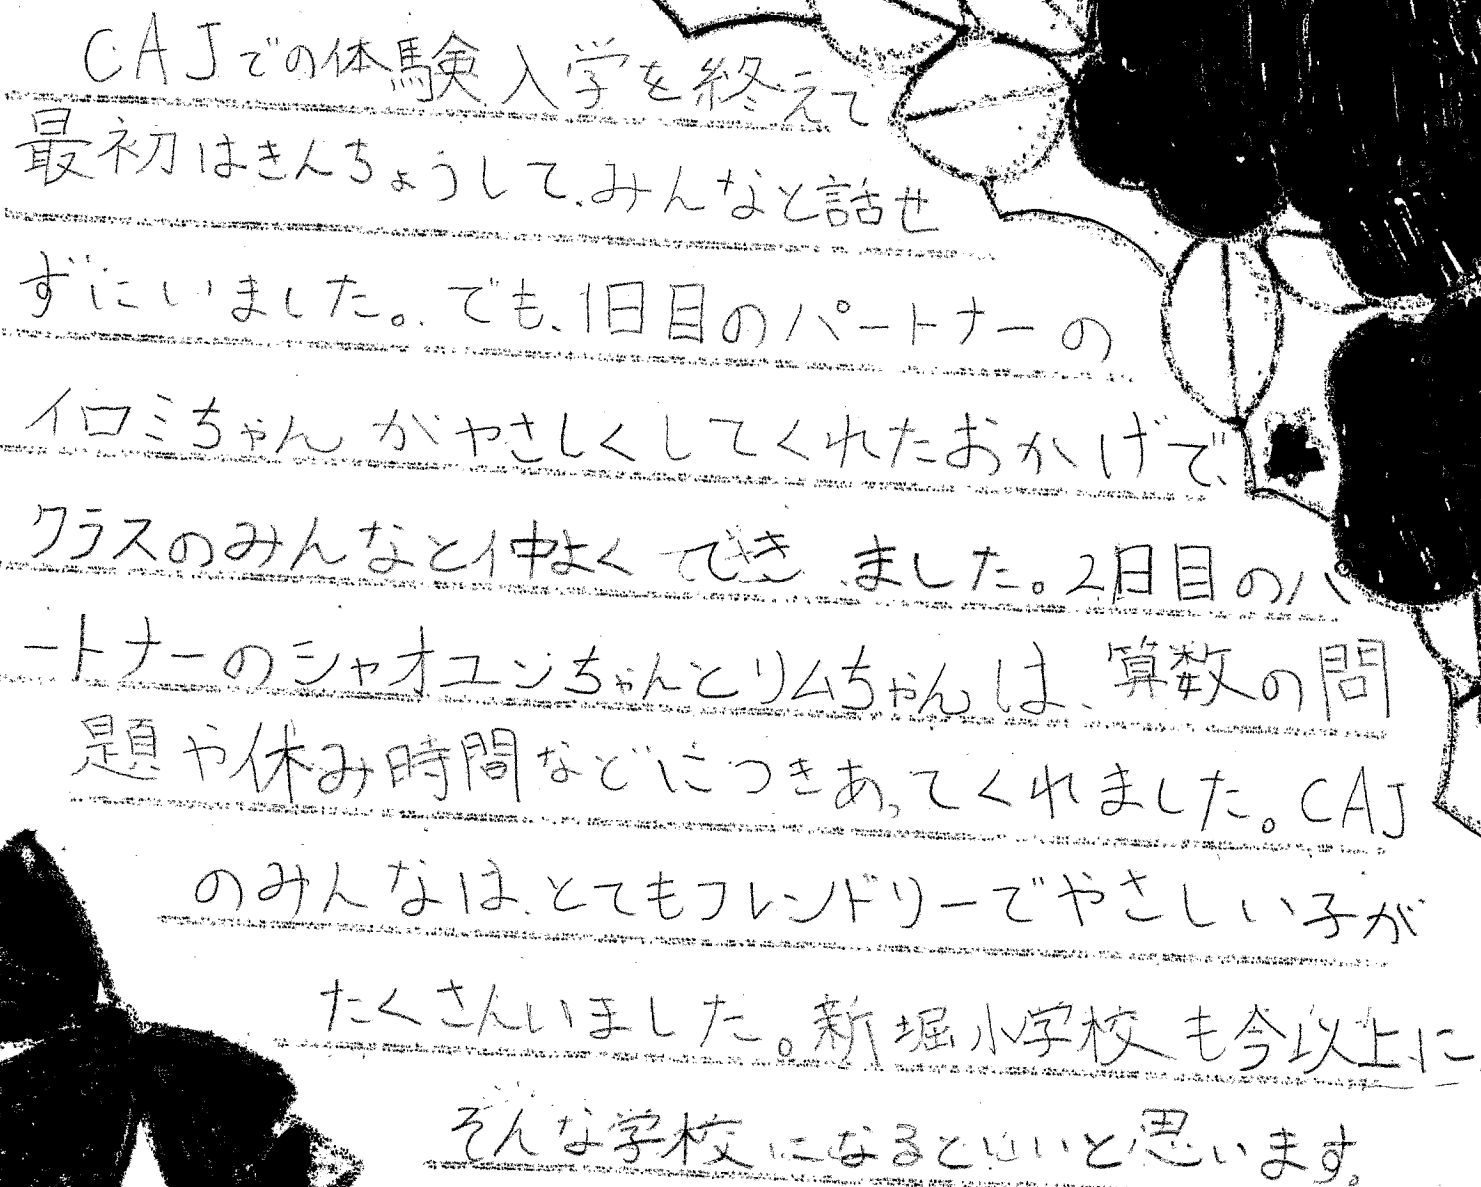 CAJでの体験入学を終えて
最初はきんちょうして、みんなと話せ
ずにいました。でも、1日目のパートナーの
イロミちゃんがやさしくしてくれたおかげで、
クラスのみんなと仲よくできました。2日目のパ
ートナーのシャオユンちゃんとリムちゃんは、算数の問
題や休み時間などにつきあってくれました。CAJ
のみんなは、とてもフレンドリーでやさしい子が
たくさんいました。新堀小学校も今以上に
そんな学校になるといいと思います。